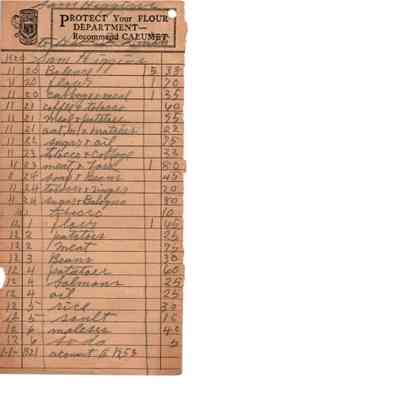 Sam Higgins
PROTECT Your FLOUR
DEPARTMENT—
Recommend CALUMET
Sam Higgins
11 20 Balance 5 38
11 20 flour 1 70
11 20 cabbage & meal 1 35
11 21 coffee & tobacco 60
11 21 meal & potatoes 55
11 21 matches 22
11 22 sugar & oil 75
11 23 tobacco & cabbage 33
11 23 meat & 1 80
11 24 soap & Beans 45
11 24 tobacco & 20
11 24 sugar & Balogna 80
tobacco 10
12 1 flour 1 45
12 2 potatoes 25
12 2 meat 75
12 3 Beans 30
12 4 potatoes 60
12 4 Salmons 25
12 4 oil 25
12 5 rice 30
12 5 sault
12 6 molases 40
12 6 soda 5